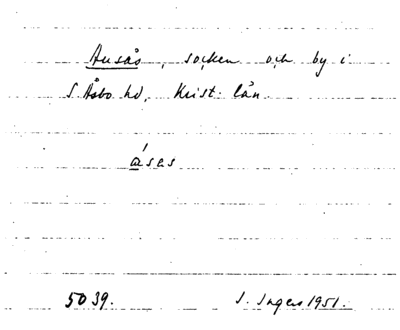 Ausås, socken och by i
S. Åsbo hd, Krist. län.
åsas
5039. J. Ingers 1951.